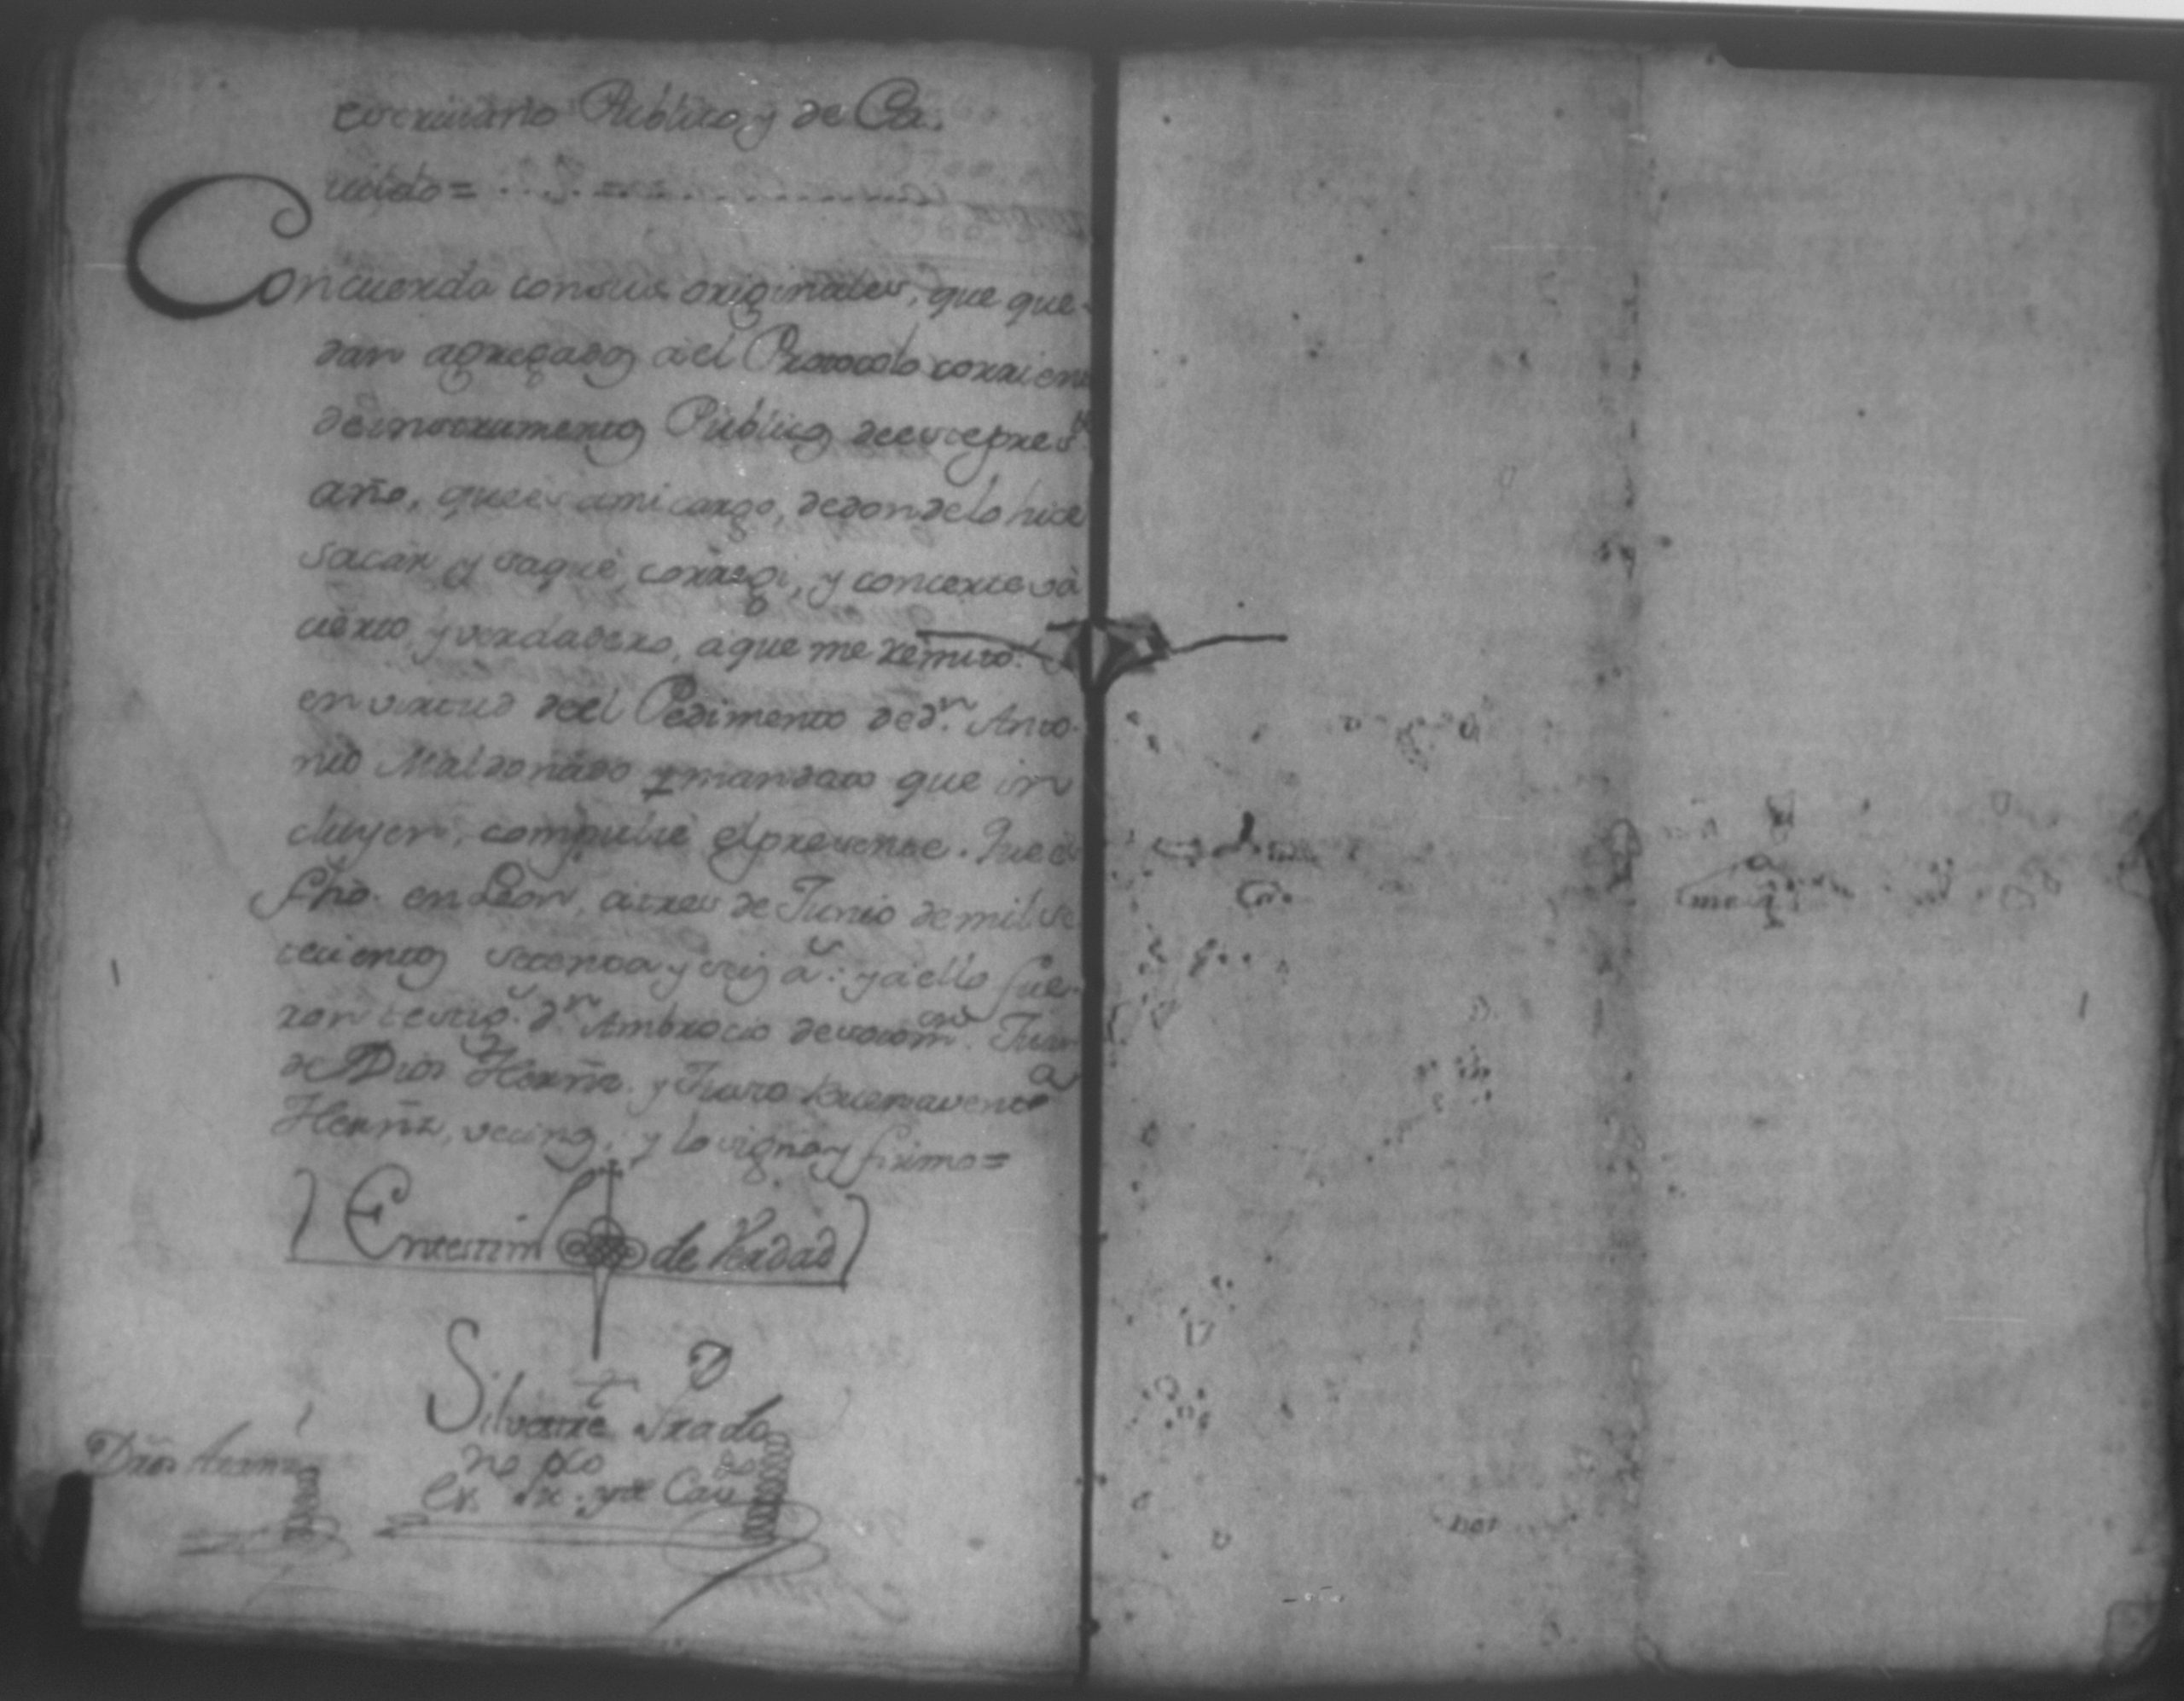 escrivano Publico, y de Ca.
vildo =
Concuerda con sus originales, que que-
dan agregados á el Protocolo corrien
de instrumentos Publicos de este pres.te
año, que es a mi cargo, de donde lo hice
sacar y saqué, corregi, y concerte vá
cierto y verdadero, a que me remito.
en virtud de el Pedimento de d.n Anto-
nio Maldonado y mandato que in
cluyen, compulse el presente. Que és
fho. en Leon, a tres de Junio de mil se
tecientos setenta y seis a.s: y a ello fue-
ron testig.s d.n Ambrocio de sotom.or Juan
de Dios Herñz. y Juaro Buenavent.a
Herñz, vecinos, y lo signo y firmo =
En testim de Verdad
Silvestre Prado
no pco do
Es. R. y de Cav
17